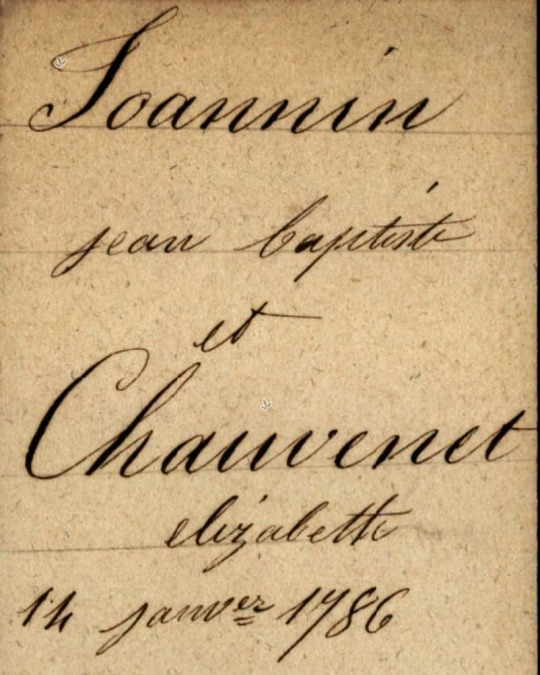 Joannin
jean baptiste
et
Chauvenet
elizabette
14 janver 1786